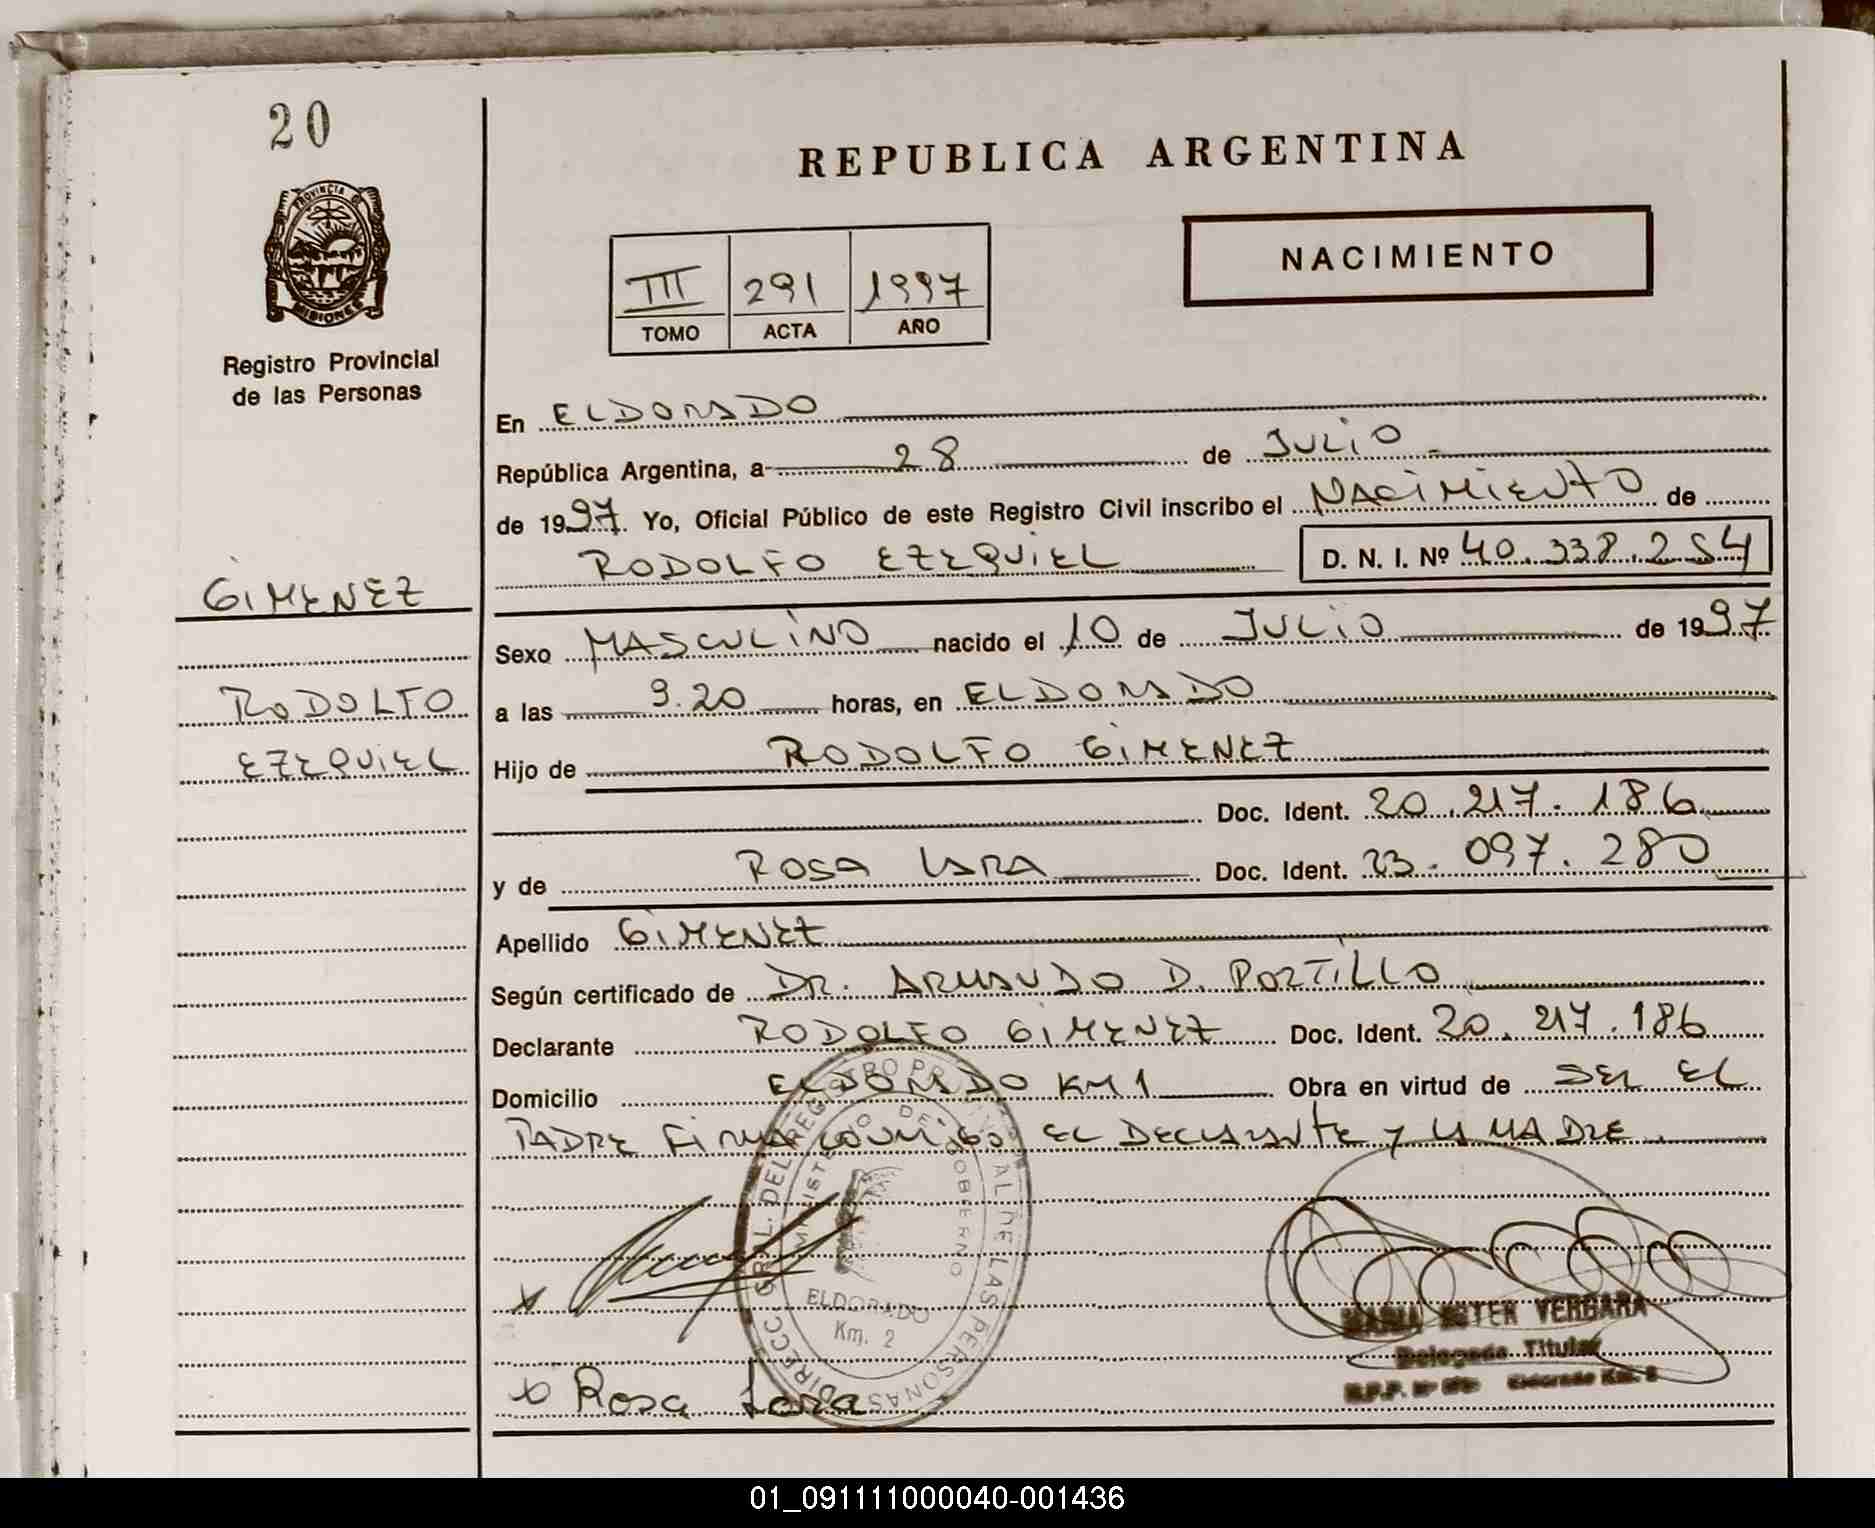 20
REPUBLICA ARGENTINA
PROVINCIA DE
MISIONES
Registro Provincial
de las Personas
III 291 1997
TOMO ACTA AÑO
NACIMIENTO
En ELDORADO
República Argentina, a 28 de JULIO
de 1997. Yo, Oficial Público de este Registro Civil inscribo el NACIMIENTO de
RODOLFO EZEQUIEL D. N. I. Nº 40.338.254
GIMENEZ
RODOLFO
EZEQUIEL
Sexo MASCULINO nacido el 10 de JULIO de 1997
a las 9.20 horas, en ELDORADO
Hijo de RODOLFO GIMENEZ
Doc. Ident. 20.217.186
y de ROSA LARA Doc. Ident. 23.097.280
Apellido GIMENEZ
Según certificado de DR. ARMANDO D. PORTILLO
Declarante RODOLFO GIMENEZ Doc. Ident. 20.217.186
Domicilio ELDORADO KM 1 Obra en virtud de SER EL
PADRE FIRMA CONMIGO EL DECLARANTE Y LA MADRE
DIRECC. GRAL. DEL REGISTRO PROVINCIAL DE LAS PERSONAS
MINISTERIO DE GOBIERNO
ELDORADO
Km. 2
MARIA ESTER VERGARA
Delegada Titular
R.P.P. Eldorado Km. 2
x Rosa Lara
01_091111000040-001436